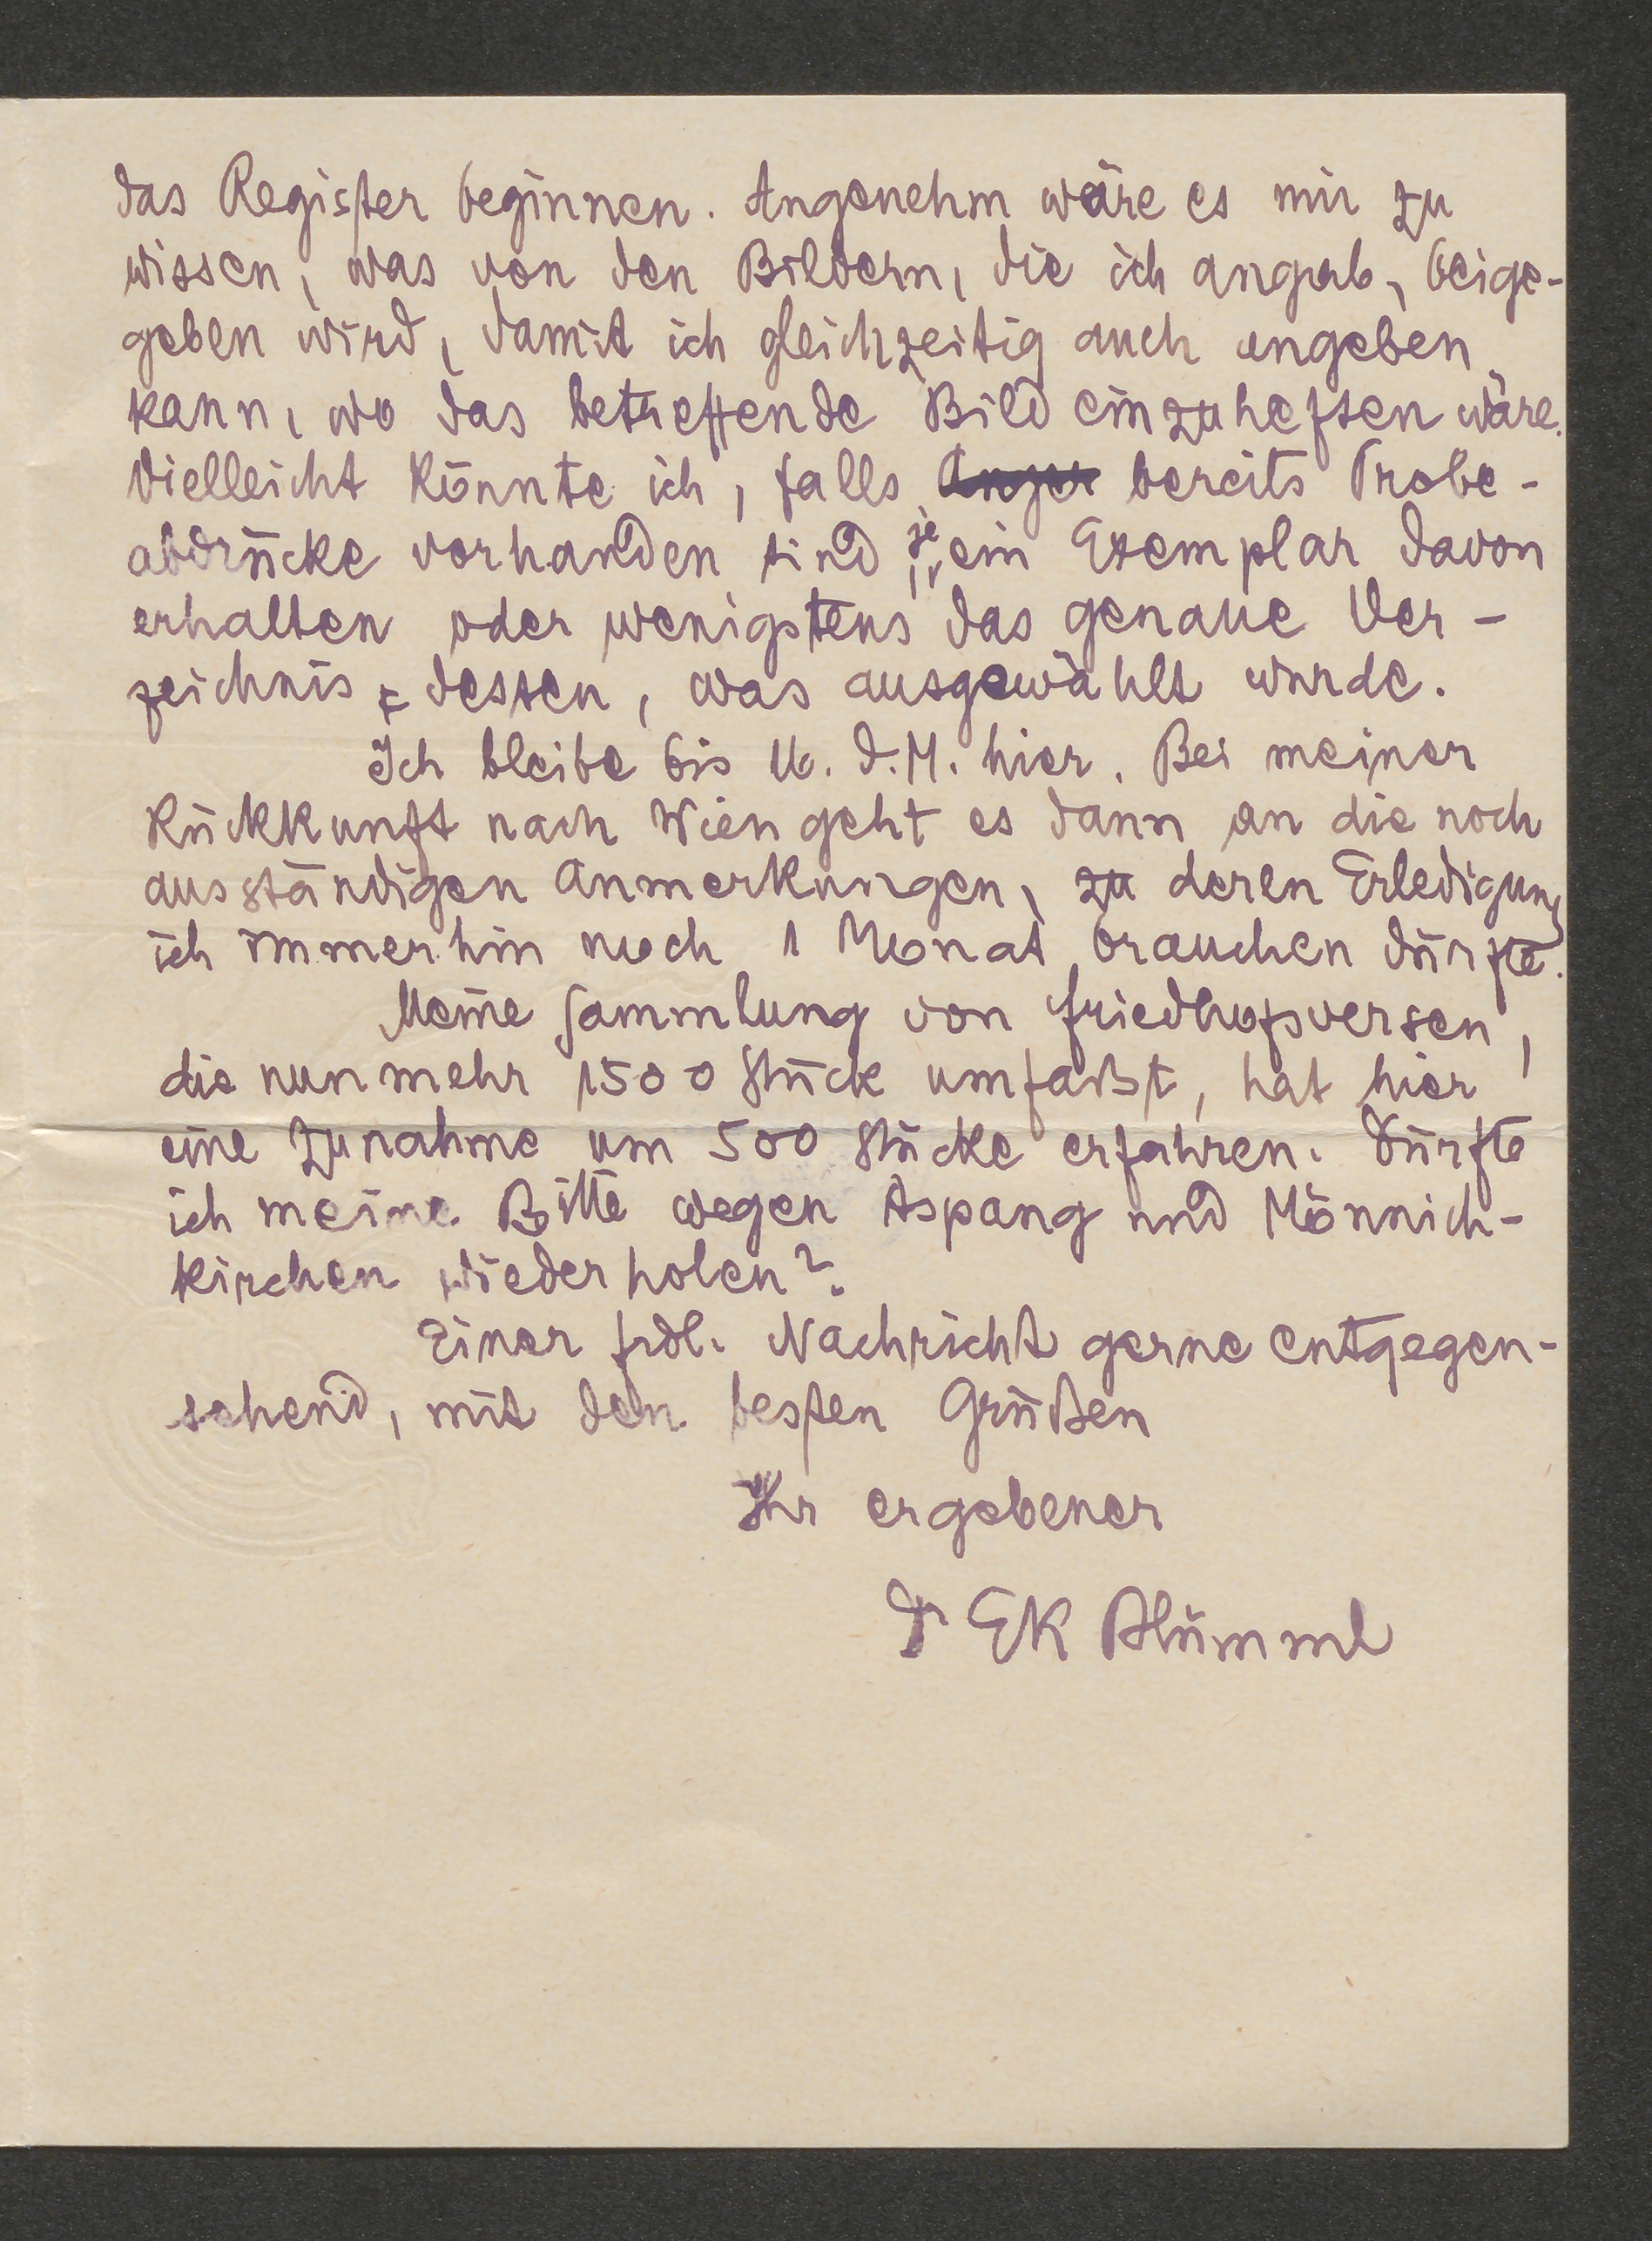 das Register beginnen. Angenehm wäre es mir zu
wissen, was von den Bildern, die ich angab, beige-
geben wird, damit ich gleichzeitig auch angeben
kann, wo das betreffende Bild einzuheften wäre.
Vielleicht könnte ich, falls bereits Probe-
abdrücke vorhanden sind, je ein Exemplar davon
erhalten oder wenigstens das genaue Ver-
zeichnis dessen, was ausgewählt wurde.
Ich bleibe bis 16. d. M. hier. Bei meiner
Rückkunft nach Wien geht es dann an die noch
ausständigen Anmerkungen, zu deren Erledigung
ich immerhin noch 1 Monat brauchen dürfte.
Meine Sammlung von Friedhofsversen,
die nunmehr 1500 Stück umfaßt, hat hier
eine Zunahme um 500 Stücke erfahren. Dürfte
ich meine Bitte wegen Aspang und Mönnich-
kirchen wiederholen?
Einer frdl. Nachricht gerne entgegen-
sehend, mit den besten Grüßen
Ihr ergebener
Dr EK Blümml